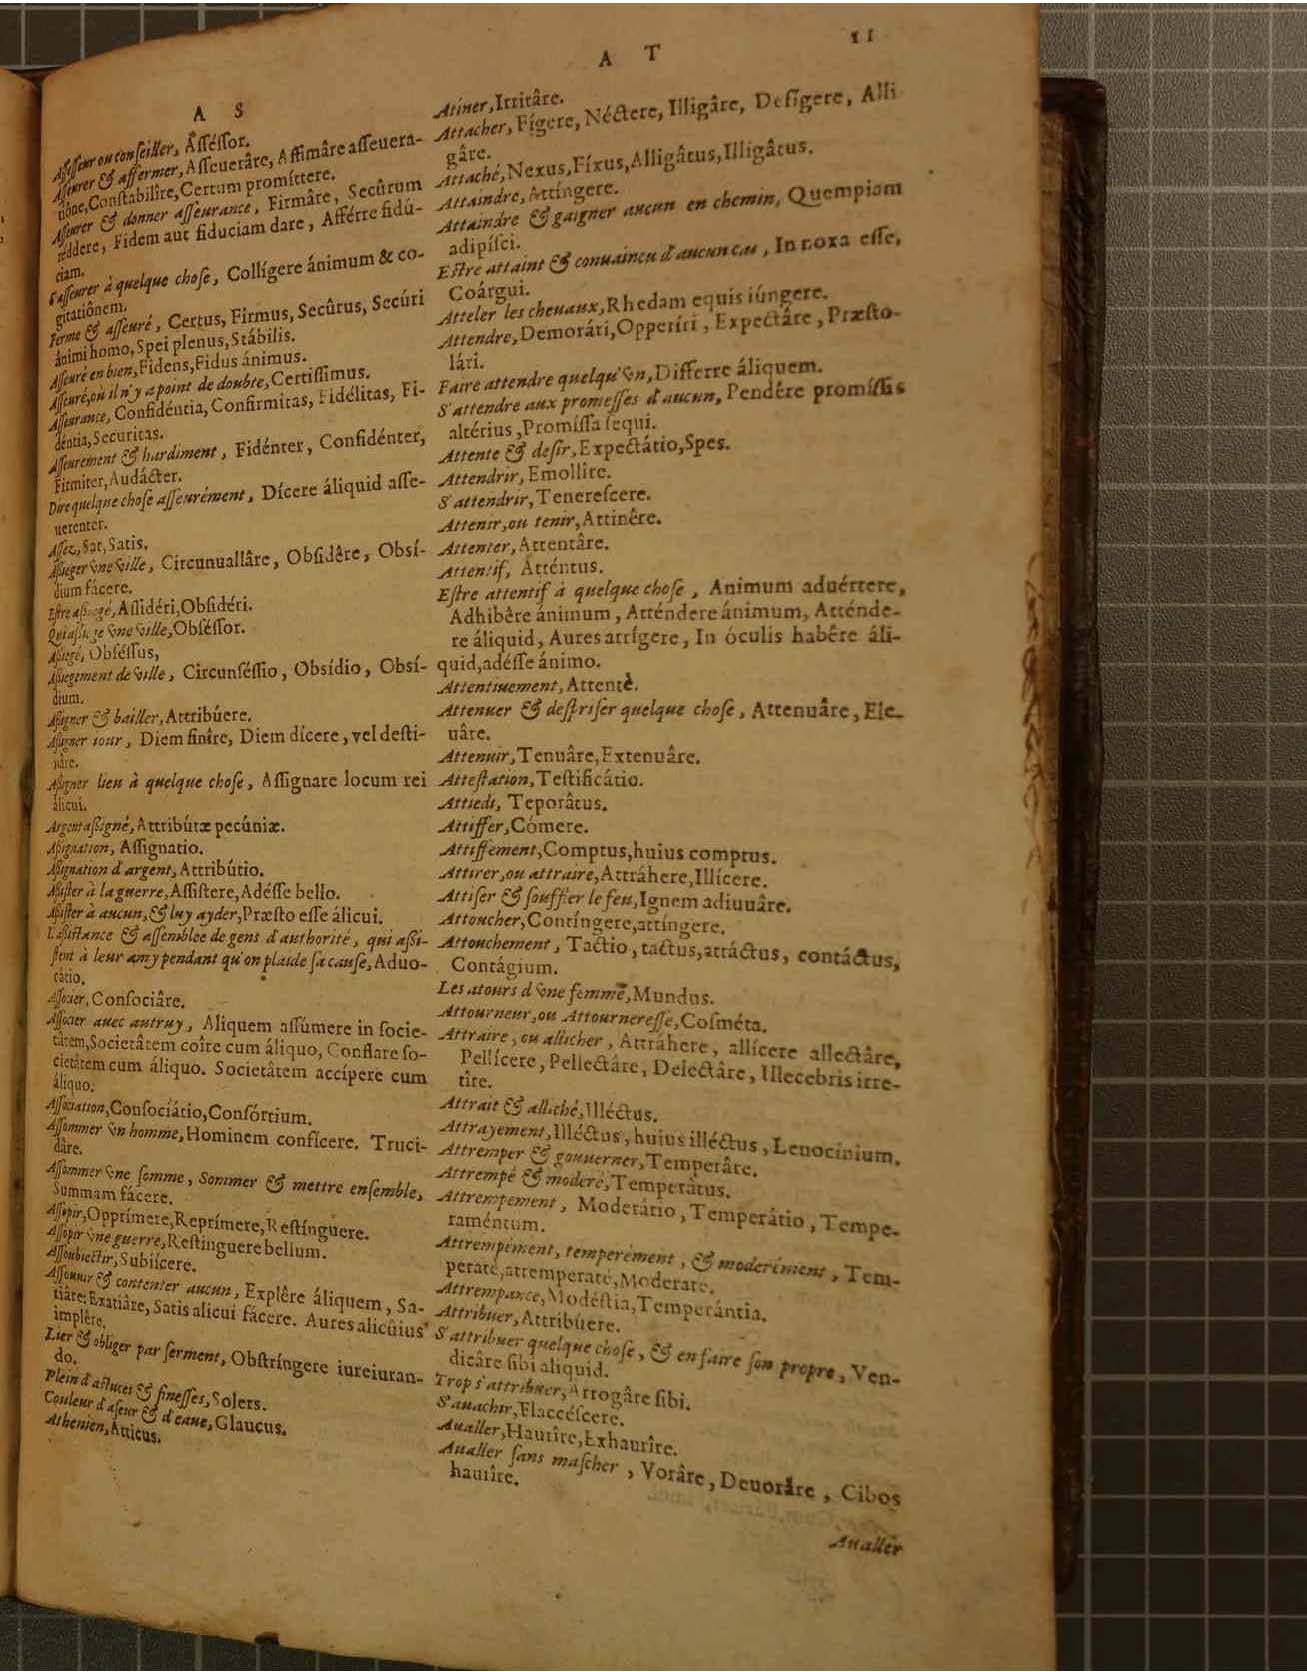 A S
Aſſeſſeur ou conſeiller, Aſſéſſor.
Aſſeurer & affermer, Aſſeuerâre, Affimâre aſſeuera-
tiône, Conſtabilîre, Certum promíttere.
Aſſeurer & donner aſſeurance, Firmâre, Secûrum
réddere, Fidem aut fiduciam dare, Afférre fidú-
ciam.
S'aſſeurer à quelque choſe, Collígere ánimum & co-
gitatiônem.
Ferme & aſſeuré, Certus, Firmus, Secûrus, Secúri
ánimi homo, Spei plenus, Stábilis.
Aſſeuré en bien, Fidens, Fidus ánimus.
Aſſeuré, où il n'y a point de doubte, Certiſſimus.
Aſſeurance, Confidéntia, Confirmitas, Fidélitas, Fi-
déntia, Securitas.
Aſſeurement & hardiment, Fidénter, Confidénter,
Firmiter, Audácter.
Dire quelque choſe aſſeurément, Dícere áliquid aſſe-
uerenter.
Aſſez, Sat, Satis.
Aſſieger vne ville, Circunuallâre, Obſidêre, Obsí-
dium fácere.
Eſtre aſſiegé, Aſſidéri, Obſidéri.
Qui aſſiege vne ville, Obſéſſor.
Aſſiegé, Obſéſſus,
Aſſiegement de ville, Circunſéſſio, Obsídio, Obsí-
dium.
Aſſigner & bailler, Attribúere.
Aſſigner iour, Diem finîre, Diem dícere, vel deſti-
nâre.
Aſſigner lieu à quelque choſe, Aſſignare locum rei
álicui.
Argent aſſigné, Attribútæ pecúniæ.
Aſſignation, Aſſignatio.
Aſſignation d'argent, Attribútio.
Aſſiſter à la guerre, Aſſiſtere, Adéſſe bello.
Aſſiſter à aucun, & luy ayder, Præſto eſſe álicui.
L'aſſiſtance & aſſemblee de gens d'authorité, qui aſſi-
ſtent à leur amy pendant qu'on plaide ſa cauſe, Aduo-
cátio.
Aſſocier, Conſociâre.
Aſſocier auec autruy, Aliquem aſſúmere in ſocie-
tâtem, Societâtem coîre cum áliquo, Conflare ſo-
cietâtem cum áliquo. Societâtem accípere cum
áliquo.
Aſſociation, Conſociátio, Conſórtium.
Aſſommer vn homme, Hominem conficere. Truci-
dâre.
Aſſommer vne ſomme, Sommer & mettre enſemble,
Summam fácere.
Aſſopir, Opprímere, Reprímere, Reſtínguere.
Aſſopir vne guerre, Reſtinguere bellum.
Aſſoubiectir, Subiícere.
Aſſouuir & contenter aucun, Explêre áliquem, Sa-
tiâre: Exatiâre, Satis alicui fácere. Aures alicûius
implêre.
Lier & obliger par ſerment, Obſtríngere iureiuran-
do.
Plein d'aſtuces & fineſſes, Solers.
Couleur d'aſeur & d'eaue, Glaucus.
Athenien, Atticus.
A T
11
Atiner, Irritâre.
Attacher, Fígere, Néctere, Illigâre, Defígere, Alli
gâre.
Attaché, Nexus, Fíxus, Alligâtus, Illigâtus.
Attaindre, Attíngere.
Attaindre & gaigner aucun en chemin, Quempiam
adipíſci.
Eſtre attaint & conuaincu d'aucun cas, In noxa eſſe,
Coárgui.
Atteler les cheuaux, Rhedam equis iúngere.
Attendre, Demorári, Opperíri, Expectâre, Præſto-
lári.
Faire attendre quelqu'vn, Differre áliquem.
S'attendre aux promeſſes d'aucun, Pendêre promíſſis
altérius, Promíſſa ſequi.
Attente & deſir, Expectátio, Spes.
Attendrir, Emollîre.
S'attendrir, Tenereſcere.
Attenir, ou tenir, Attinêre.
Attenter, Attentâre.
Attentif, Atténtus.
Eſtre attentif à quelque choſe, Animum aduértere,
Adhibêre ánimum, Atténdere ánimum, Atténde-
re áliquid, Aures arrígere, In óculis habêre áli-
quid, adéſſe ánimo.
Attentiuement, Attentè.
Attenuer & deſpriſer quelque choſe, Attenuâre, Ele-
uâre.
Attenuir, Tenuâre, Extenuâre.
Atteſtation, Teſtificátio.
Attiedi, Teporâtus.
Attiffer, Cómere.
Attiffement, Comptus, huius comptus.
Attirer, ou attraire, Attráhere, Illícere.
Attiſer & ſouffler le feu, Ignem adiuuâre.
Attoucher, Contíngere, attíngere.
Attouchement, Tactio, tactus, attáctus, contáctus,
Contágium.
Les atours d'vne femme, Mundus.
Attourneur, ou Attournereſſe, Coſméta.
Attraire, ou allicher, Attráhere, allícere allectâre,
Pellícere, Pellectâre, Delectâre, Illecebris irre-
tîre.
Attrait & alliché, Illéctus.
Attrayement, Illéctus, huius illéctus, Lenocinium.
Attremper & gouuerner, Temperâre.
Attrempé & moderé, Temperâtus.
Attrempement, Moderátio, Temperátio, Tempe-
raméntum.
Attrempément, temperément, & moderément, Tem-
peratè, attemperatè, Moderatè.
Attrempance, Modéſtia, Temperántia.
Attribuer, Attribúere.
S'attribuer quelque choſe, & en faire ſon propre, Ven-
dicâre ſibi aliquid.
Trop s'attribuer, Arrogâre ſibi.
S'auachir, Flaccéſcere.
Aualler, Haurîre, Exhaurîre.
Aualler ſans maſcher, Vorâre, Deuorâre, Cibos
haurîre.
Aualler